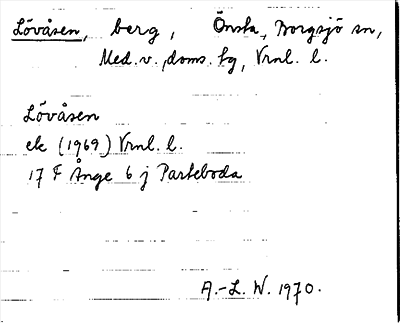 Lövåsen, berg, Önsta, Borgsjö sn,
Med. v. doms. fg, Vrnl. l.
Lövåsen
ek (1969) Vrnl. l.
17 F Ånge 6 j Parteboda
A.-L. W. 1970.